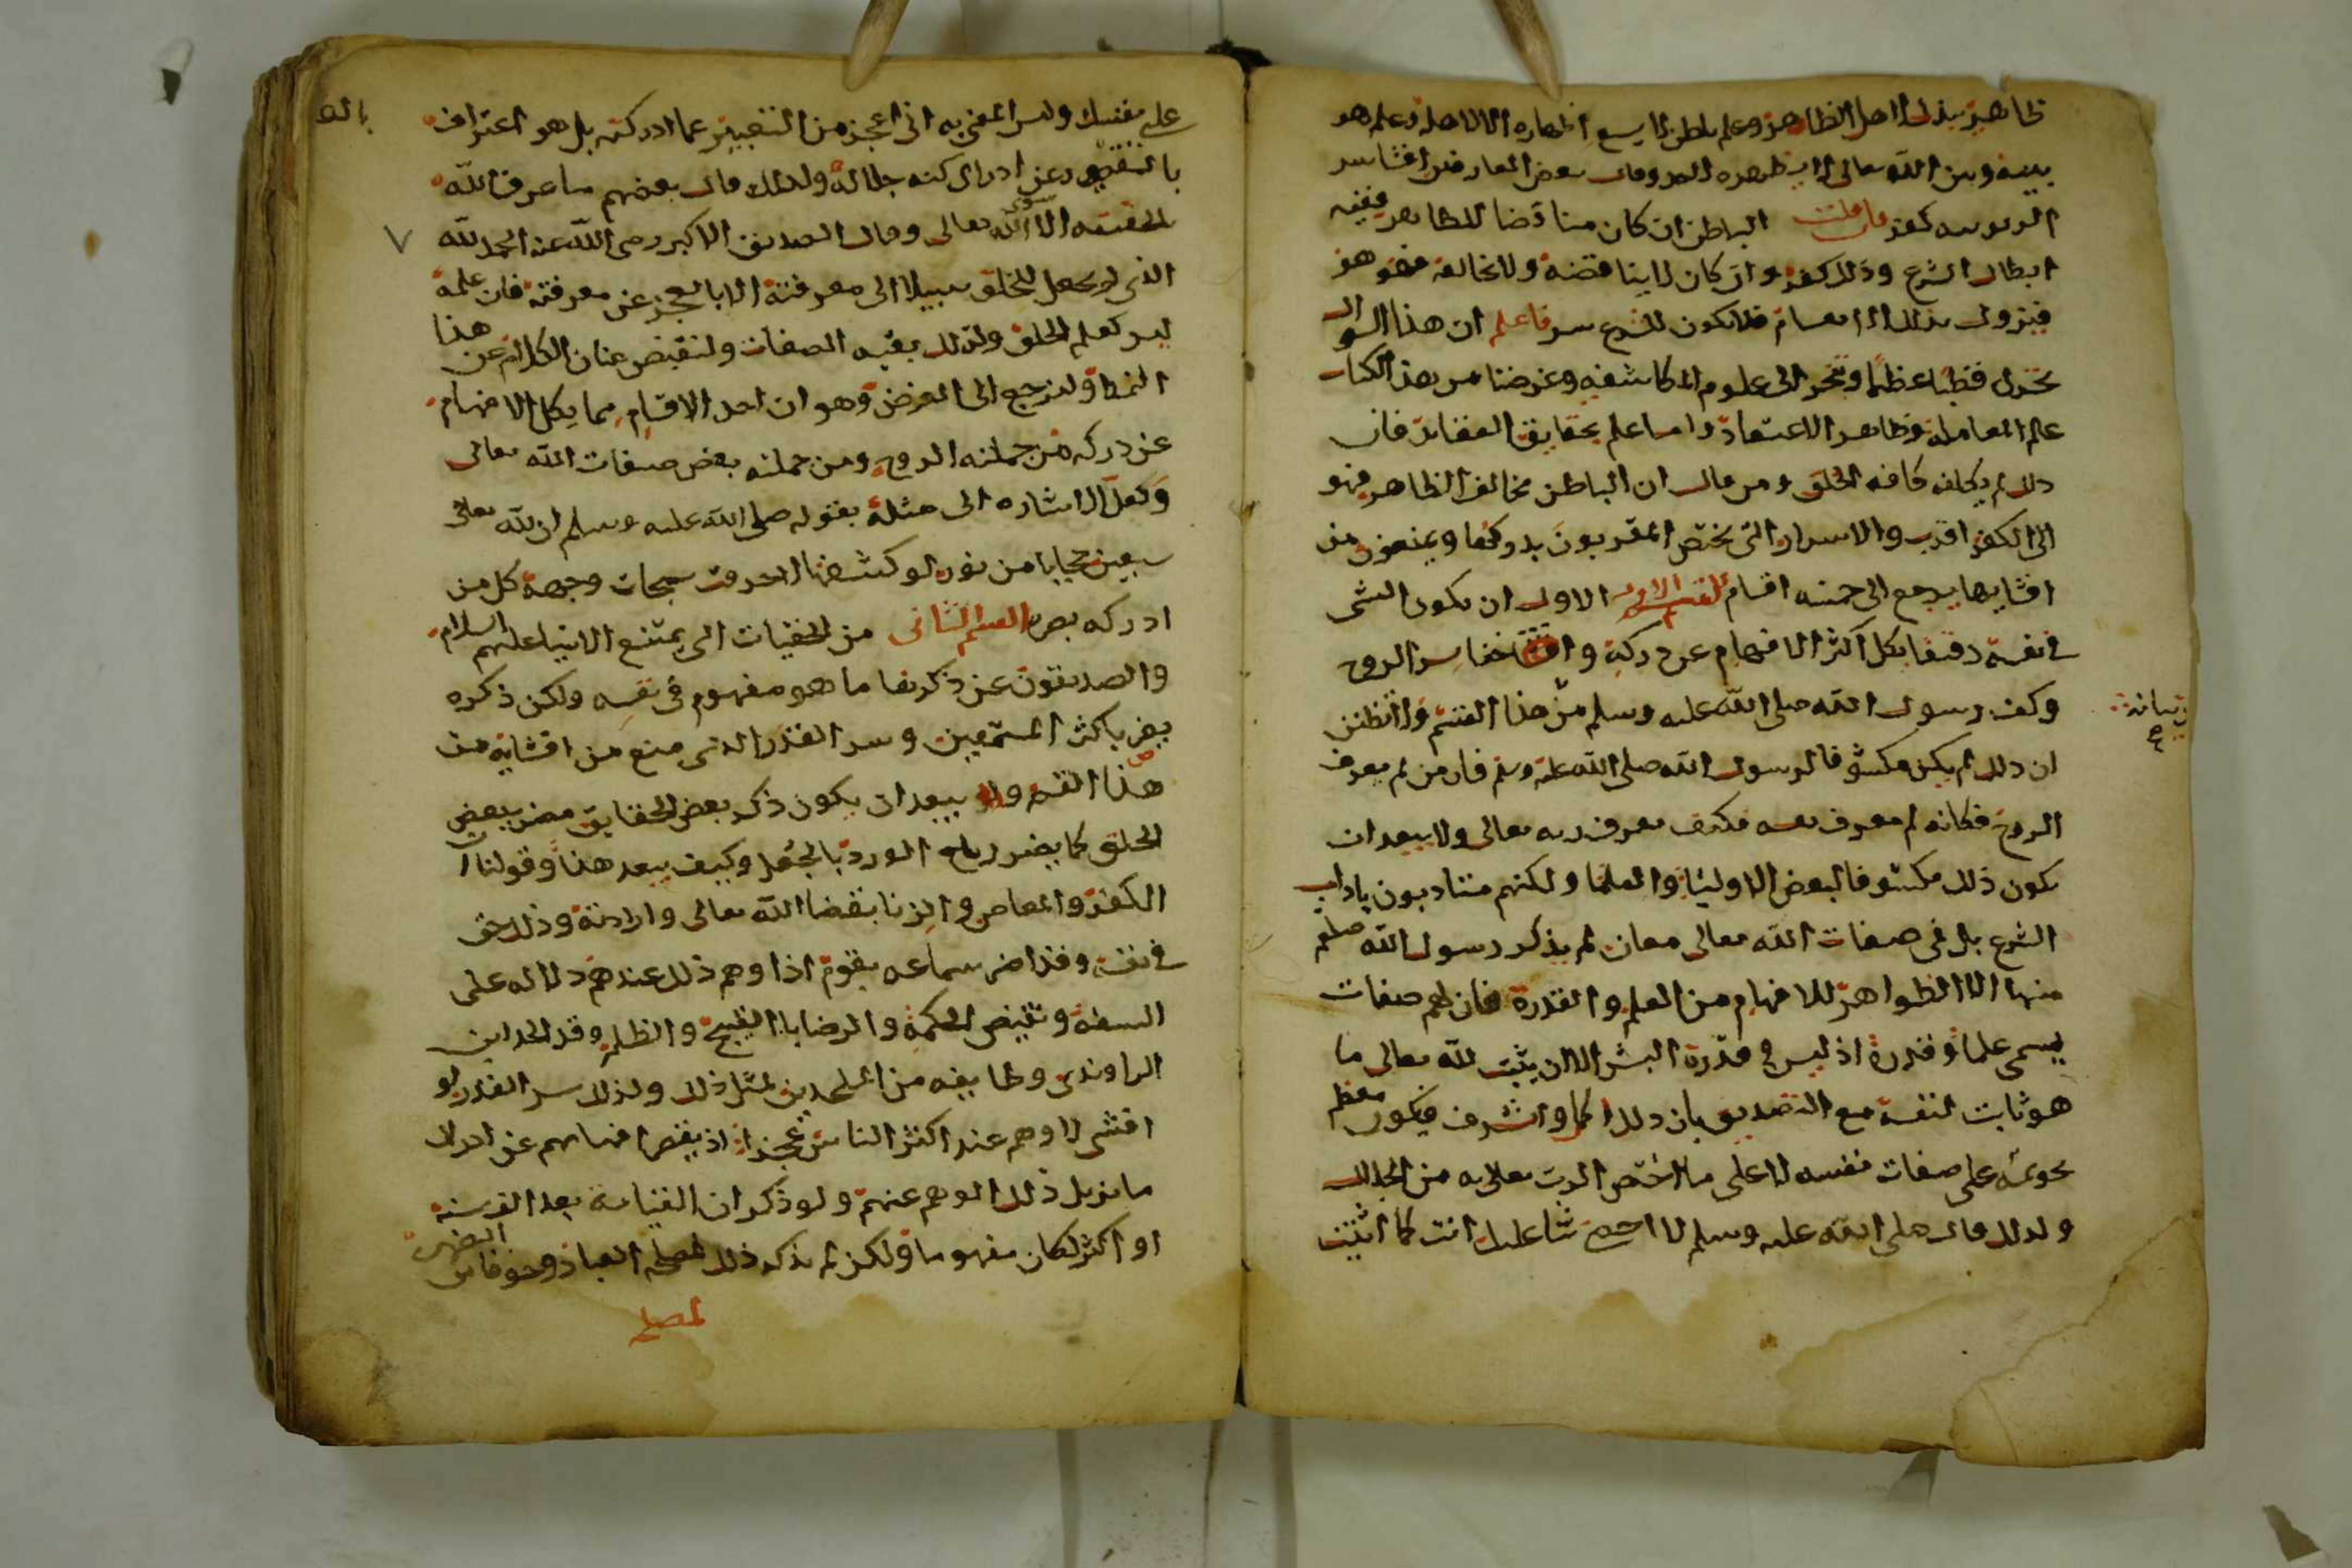 ظاهر يبذله لاهل الظاهر وعلم باطن لا يسع اظهاره الا لاهله وعلم هو
بينه وبين الله تعالى لا يظهره لاحد وقال بعض العارفين افشا سر
الربوبيه كفر فان قلت الباطن ان كان مناقضا للظاهر ففيه
ابطال الشرع وذلك كفر وان كان لا يناقضه ولا يخالفه فهو هو
فيزول بذلك الانقسام فلا يكون للشرع سر فاعلم ان هذا السوال
يحرك خطبا عظيما وينجر الى علوم المكاشفه وغرضنا من هذا الكتاب
علم المعامله وظاهر الاعتقاد واما علم بحقايق العقايد فان
ذلك لم يكلف كافه الخلق ومن قال ان الباطن مخالف الظاهر فهو
الى الكفر اقرب والاسرار التى يختص المقربون بدركها ويمنعون من
افشايها يرجع الى خمسه اقسام القسم الاول الاول ان يكون الشى
فى نفسه دقيقا يكل اكثر الافهام عن دركه واخفا سر الروح
وكف رسول الله صلى الله عليه وسلم من هذا القسم ولا تظنن
بيانه
ان ذلك لم يكن مكشوفا لرسول الله صلى الله عليه وسلم فان من لم يعرف
الروح فكانه لم يعرف نفسه فكيف يعرف ربه تعالى ولا يبعد ان
يكون ذلك مكشوفا لبعض الاوليا والعلما ولكنهم متادبون باداب
الشرع بل فى صفات الله تعالى معان لم يذكر رسول الله صلعم
منها الا الظواهر للافهام من العلم والقدرة فان لهم صفات
يسمى علما وقدرة اذ ليس فى قدرة البشر الا ان يثبت لله تعالى ما
هو ثابت لنفسه مع التصديق بان ذلك اكمل واشرف فيكون معظم
تحويمه على صفات نفسه لا على ما اختص الرب تعالى به من الجلال
ولذلك قال صلى الله عليه وسلم لا احصى ثنا عليك انت كما اثنيت
على نفسك وليس المعنى به انى اعجز من التعبير عما ادركته بل هو اعتراف
بالقصور عن ادراك كنه جلاله ولذلك قال بعضهم ما عرف الله
بالحقيقه الا الله سوى تعالى وقال الصديق الاكبر رضى الله عنه الحمد لله
الذى لم يجعل للخلق سبيلا الى معرفته الا بالعجز عن معرفته فان علمه
ليس كعلم الخلق ولذلك بقيه الصفات ولنقبض عنان الكلام عن هذا
النمط ولنرجع الى الغرض وهو ان احد الاقسام مما يكل الافهام
عن دركه من جملته الروح ومن جملته بعض صفات الله تعالى
ولعل الاشاره الى مثله بقوله صلى الله عليه وسلم ان لله تعالى
سبعين حجابا من نور لو كشفها لاحرقت سبحات وجهه كل من
ادركه بصره القسم الثانى من الخفيات التى يمتنع الانبيا عليهم السلام
والصديقون عن ذكرها ما هو مفهوم فى نفسه ولكن ذكره
يضر باكثر المستمعين وسر القدر الذى منع من افشايه من
هذا القسم ولا يبعد ان يكون ذكر بعض الحقايق مضر ببعض
الخلق كما يضر رياح الورد بالجعل وكيف يبعد هذا وقولنا ان
الكفر والمعاصى والزنا بقضا الله تعالى وارادته وذلك حق
فى نفسه وقد اضر سماعه بقوم اذ اوهم ذلك عندهم دلاله على
السفه ونقيض الحكمة والرضا بالقبيح والظلم وقد الحد ابن
الراوندى وطايفه من الملحدين لمثل ذلك ولذلك سر القدر لو
افشى لاوهم عند اكثر الناس عجزا اذ يقصر افهامهم عن ادراك
ما يزيل ذلك الوهم عنهم ولو ذكر ان القيامة بعد الف سنه
او اكثر لكان مفهوما ولكن لم يذكر ذلك لمصلحه العباد وخوفا من الضرر
لمصلحه